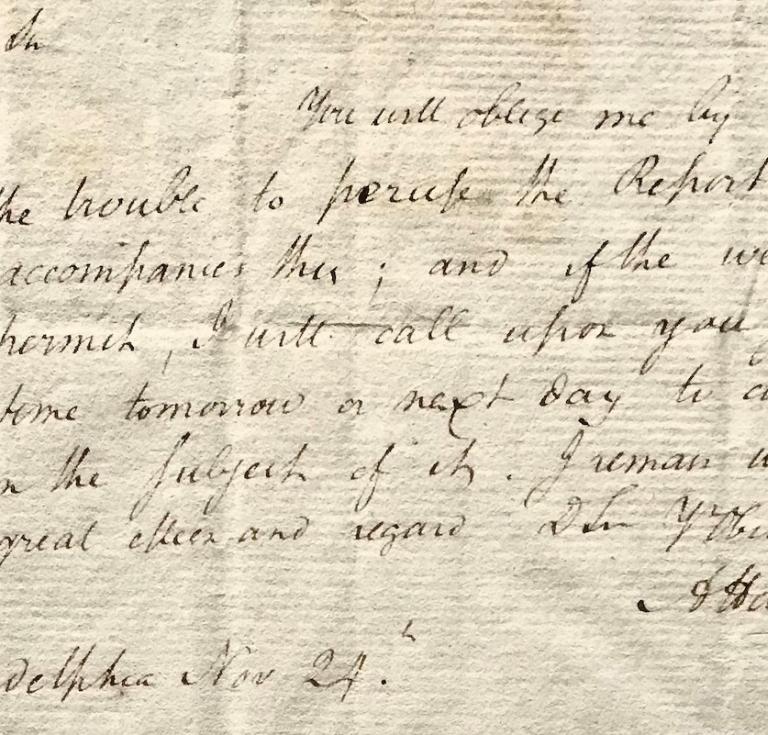 Sir
You will oblige me by
the trouble to peruse the Report
accompanies this ; and if the we
permit, I will call upon you
time tomorrow or next day to
n the subject of it. I remain
great esteem and regard D Sir Yr Ob
A Ha
delphia Nov 24.h